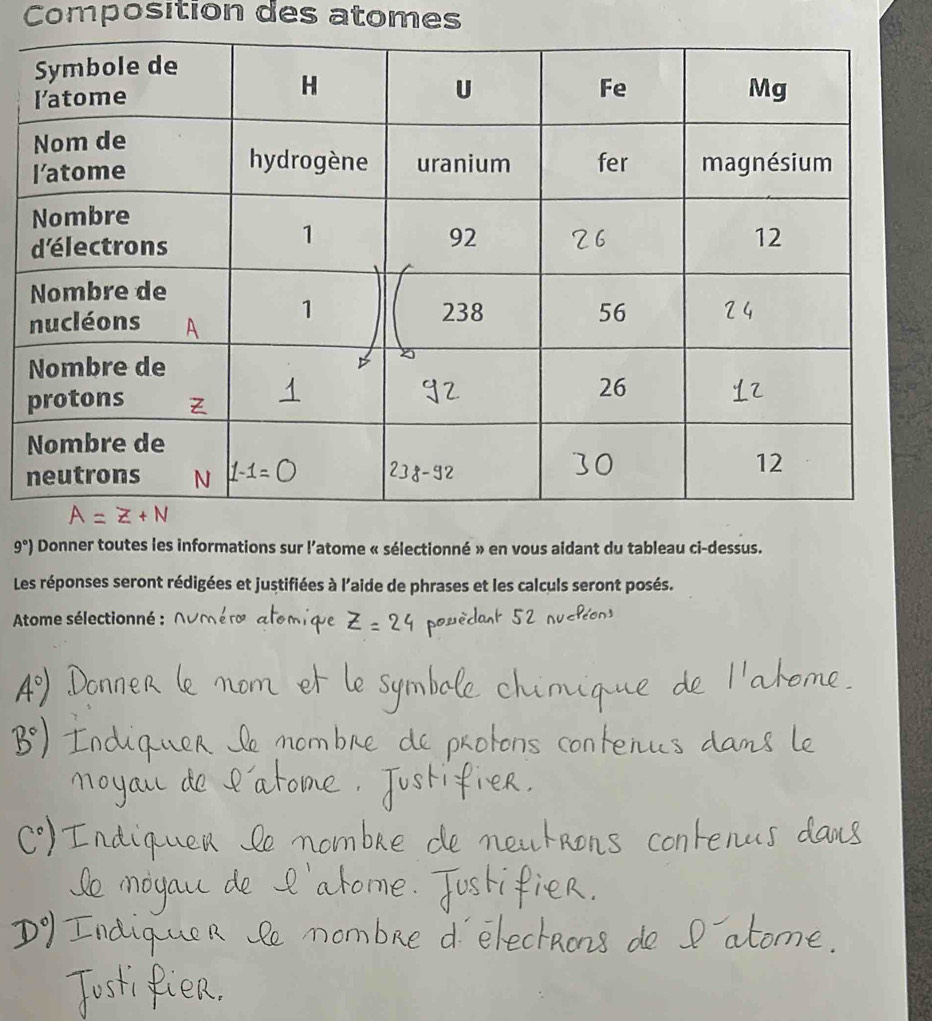 Composition des atomes
Symbole de l'atome H U Fe Mg
Nom de l'atome hydrogène uranium fer magnésium
Nombre d'électrons 1 92 26 12
Nombre de nucléons A 1 238 56 24
Nombre de protons Z 1 92 26 12
Nombre de neutrons N 1-1=0 238-92 30 12
A = Z + N
9°) Donner toutes les informations sur l'atome « sélectionné » en vous aidant du tableau ci-dessus.
Les réponses seront rédigées et justifiées à l'aide de phrases et les calculs seront posés.
Atome sélectionné : numéro atomique Z = 24 possèdant 52 nucléons
A°) Donner le nom et le symbole chimique de l'atome.
B°) Indiquer le nombre de protons contenus dans le
noyau de l'atome. Justifier.
C°) Indiquer le nombre de neutrons contenus dans
le noyau de l'atome. Justifier.
D°) Indiquer le nombre d'électrons de l'atome.
Justifier.